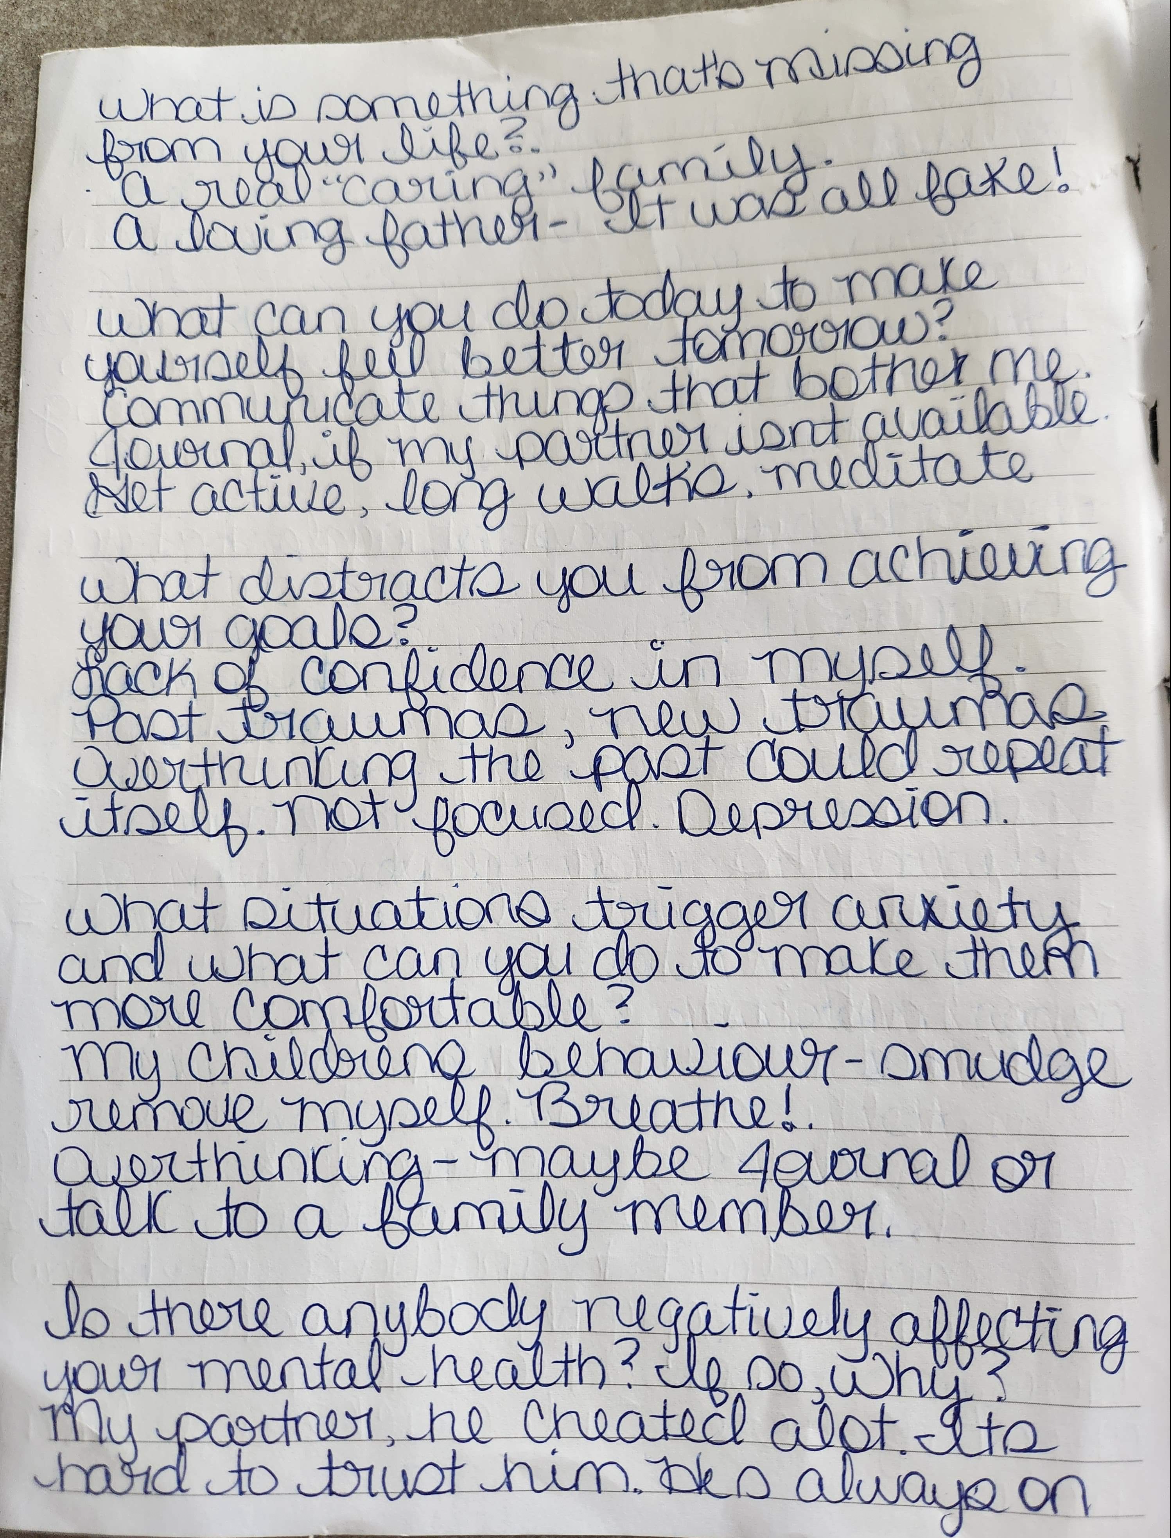 What is something that's missing
from your life?.
A real "caring" family.
A loving father - It was all fake!
What can you do today to make
yourself feel better tomorrow?
Communicate things that bother me.
Journal, if my partner isnt available.
Get active, long walks, meditate
What distracts you from achieving
your goals?
Lack of confidence in myself.
Past traumas, new traumas
Overthinking the past could repeat
itself. Not focused. Depression.
What situations trigger anxiety
and what can you do to make them
more comfortable?
My childrens behaviour - smudge
remove myself. Breathe!.
Overthinking - maybe Journal or
talk to a family member.
Is there anybody negatively affecting
your mental health? If so, why?
My partner, he cheated alot. Its
hard to trust him. Hes always on